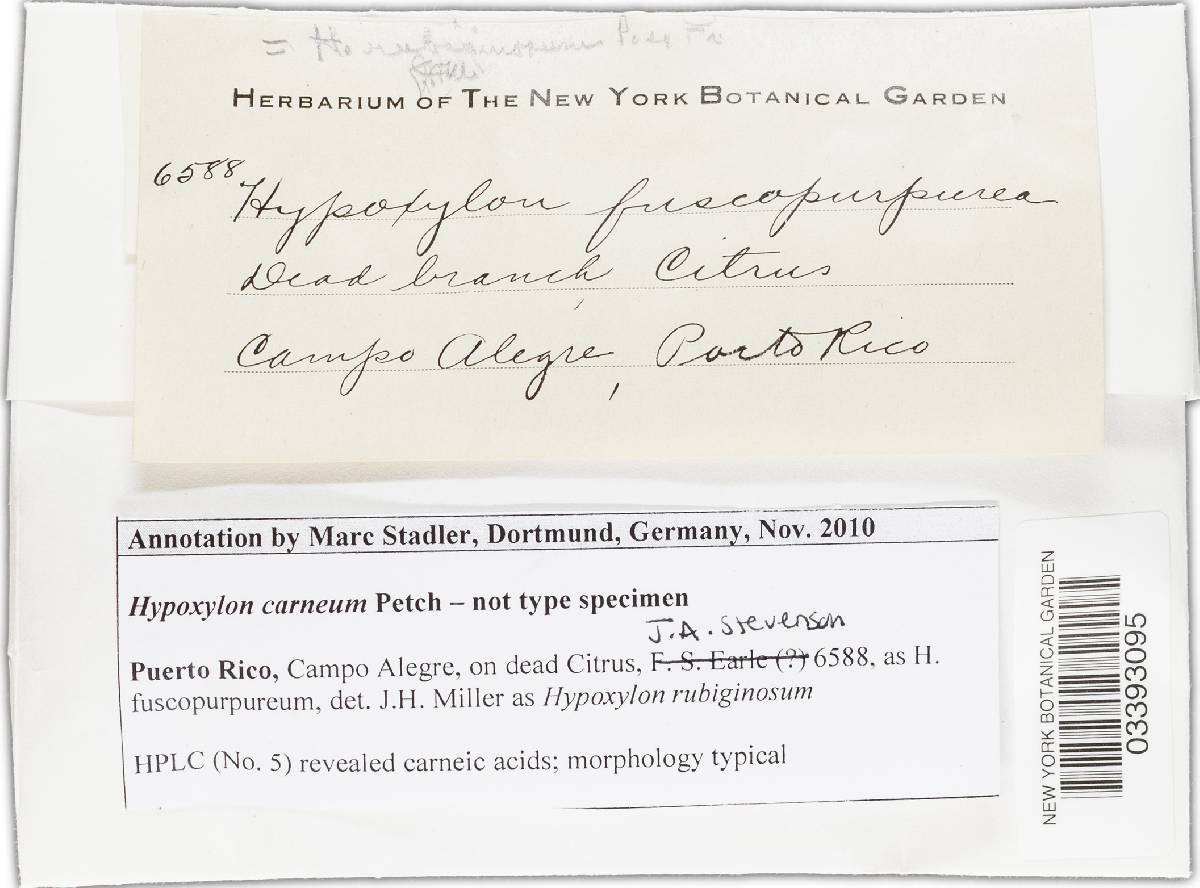 = H. rubiginosum Pers Fr
HERBARIUM OF THE NEW YORK BOTANICAL GARDEN
6588
Hypoxylon fuscopurpurea
Dead branch Citrus
Campo Alegre, Porto Rico
Annotation by Marc Stadler, Dortmund, Germany, Nov. 2010
Hypoxylon carneum Petch – not type specimen
J.A. Stevenson
Puerto Rico, Campo Alegre, on dead Citrus, F. S. Earle (?) 6588, as H.
fuscopurpureum, det. J.H. Miller as Hypoxylon rubiginosum
HPLC (No. 5) revealed carneic acids; morphology typical
NEW YORK BOTANICAL GARDEN
03393095